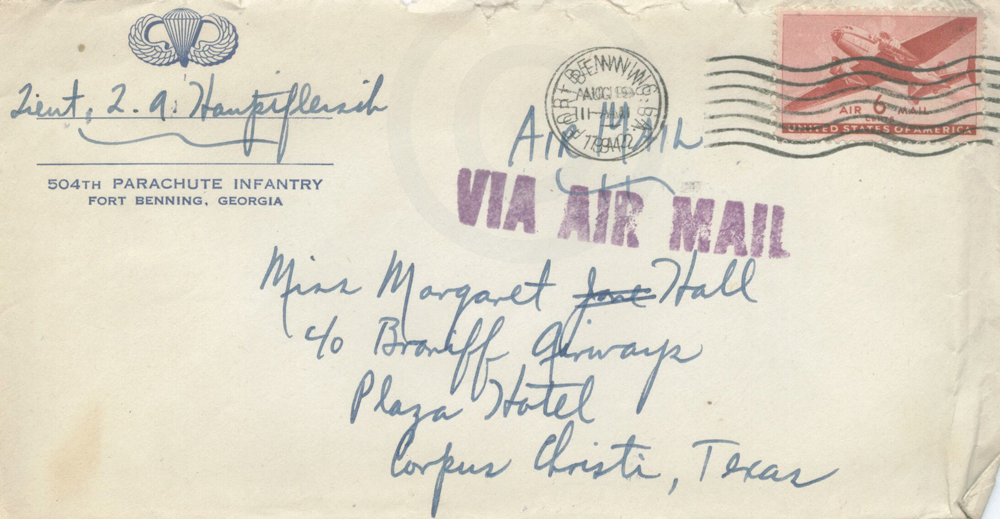 Lieut. L. A. Hauptfleisch
504TH PARACHUTE INFANTRY
FORT BENNING, GEORGIA
FORT BENNING, GA.
AUG
AIR 6¢ MAIL
UNITED STATES OF AMERICA
AIR MAIL
VIA AIR MAIL
Miss Margaret Jane Hall
c/o Braniff Airways
Plaza Hotel
Corpus Christi, Texas